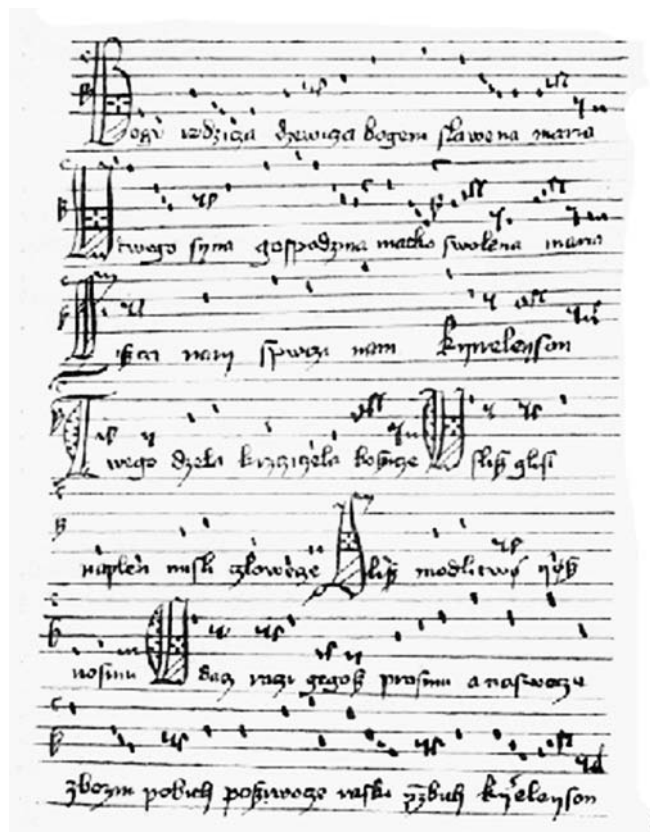 Bogv rodzicza dzewicza bogem slawena maria
U twego syna gospodzina matko swolena maria
nam spwczi nam Kyrieleyson
Twego dzela krzcziczela bozicze Uslisz glosi
naplen misli czlowecze Slisz modlitwø yøsz
nosimi raczi gegosz prosimi a naswecze
pobith kyrieleyson